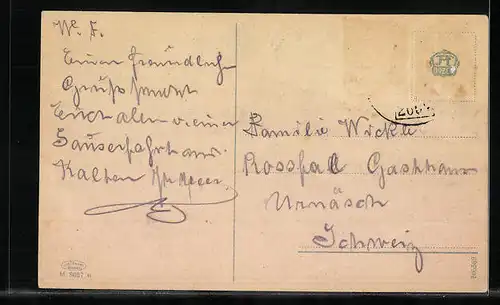 W. F.
Einen freundlichen
Gruß sendet
Euch allen v. einer
Sauserfahrt aus
Kaltern
Familie Wickle
Rossfal Gasthaus
Urnäsch
Schweiz
M. 5057